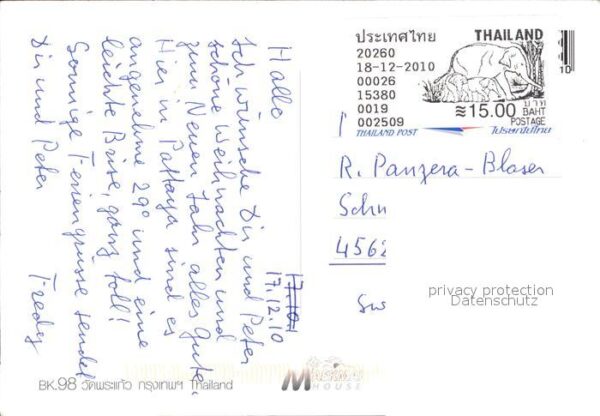 Hallo
17.10
17.12.10
Ich wünsche Dir und Peter
schöne Weihnachten und
zum Neuen Jahr alles Gute.
Hier in Pattaya sind es
angenehme 29° und eine
leichte Brise, ganz toll!
Sonnige Feriengrüsse sendet
Dir und Peter
Fredy
ประเทศไทย THAILAND
20260
18-12-2010
00026
15380
0019
002509
≈15.00 บาท BAHT
POSTAGE
THAILAND POST ไปรษณีย์ไทย
10
R. Panzera-Blaser
Schu
4562
Sw
privacy protection
Datenschutz
BK.98 วัดพระแก้ว กรุงเทพฯ Thailand
HOUSE